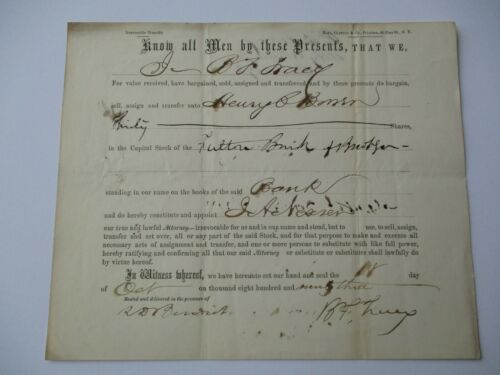 Irrevocable Transfer
Know all Men by these Presents, THAT WE,
I B F Tracy
For value received, have bargained, sold, assigned and transferred, and by these presents do bargain,
sell, assign and transfer unto Henry C Bowen
Thirty Shares,
in the Capital Stock of the Fulton Bank of Brooklyn
standing in our name on the books of the said Bank
and do hereby constitute and appoint
our true and lawful Attorney—irrevocable for us and in our name and stead, but to use, to sell, assign,
transfer and set over, all or any part of the said Stock, and for that purpose to make and execute all
necessary acts of assignment and transfer, and one or more persons to substitute with like full power,
hereby ratifying and confirming all that our said Attorney or substitute or substitutes shall lawfully do
by virtue hereof.
In Witness whereof, we have hereunto set our hand and seal the 18 day
of Oct one thousand eight hundred and
Sealed and delivered in the presence of
B F Tracy